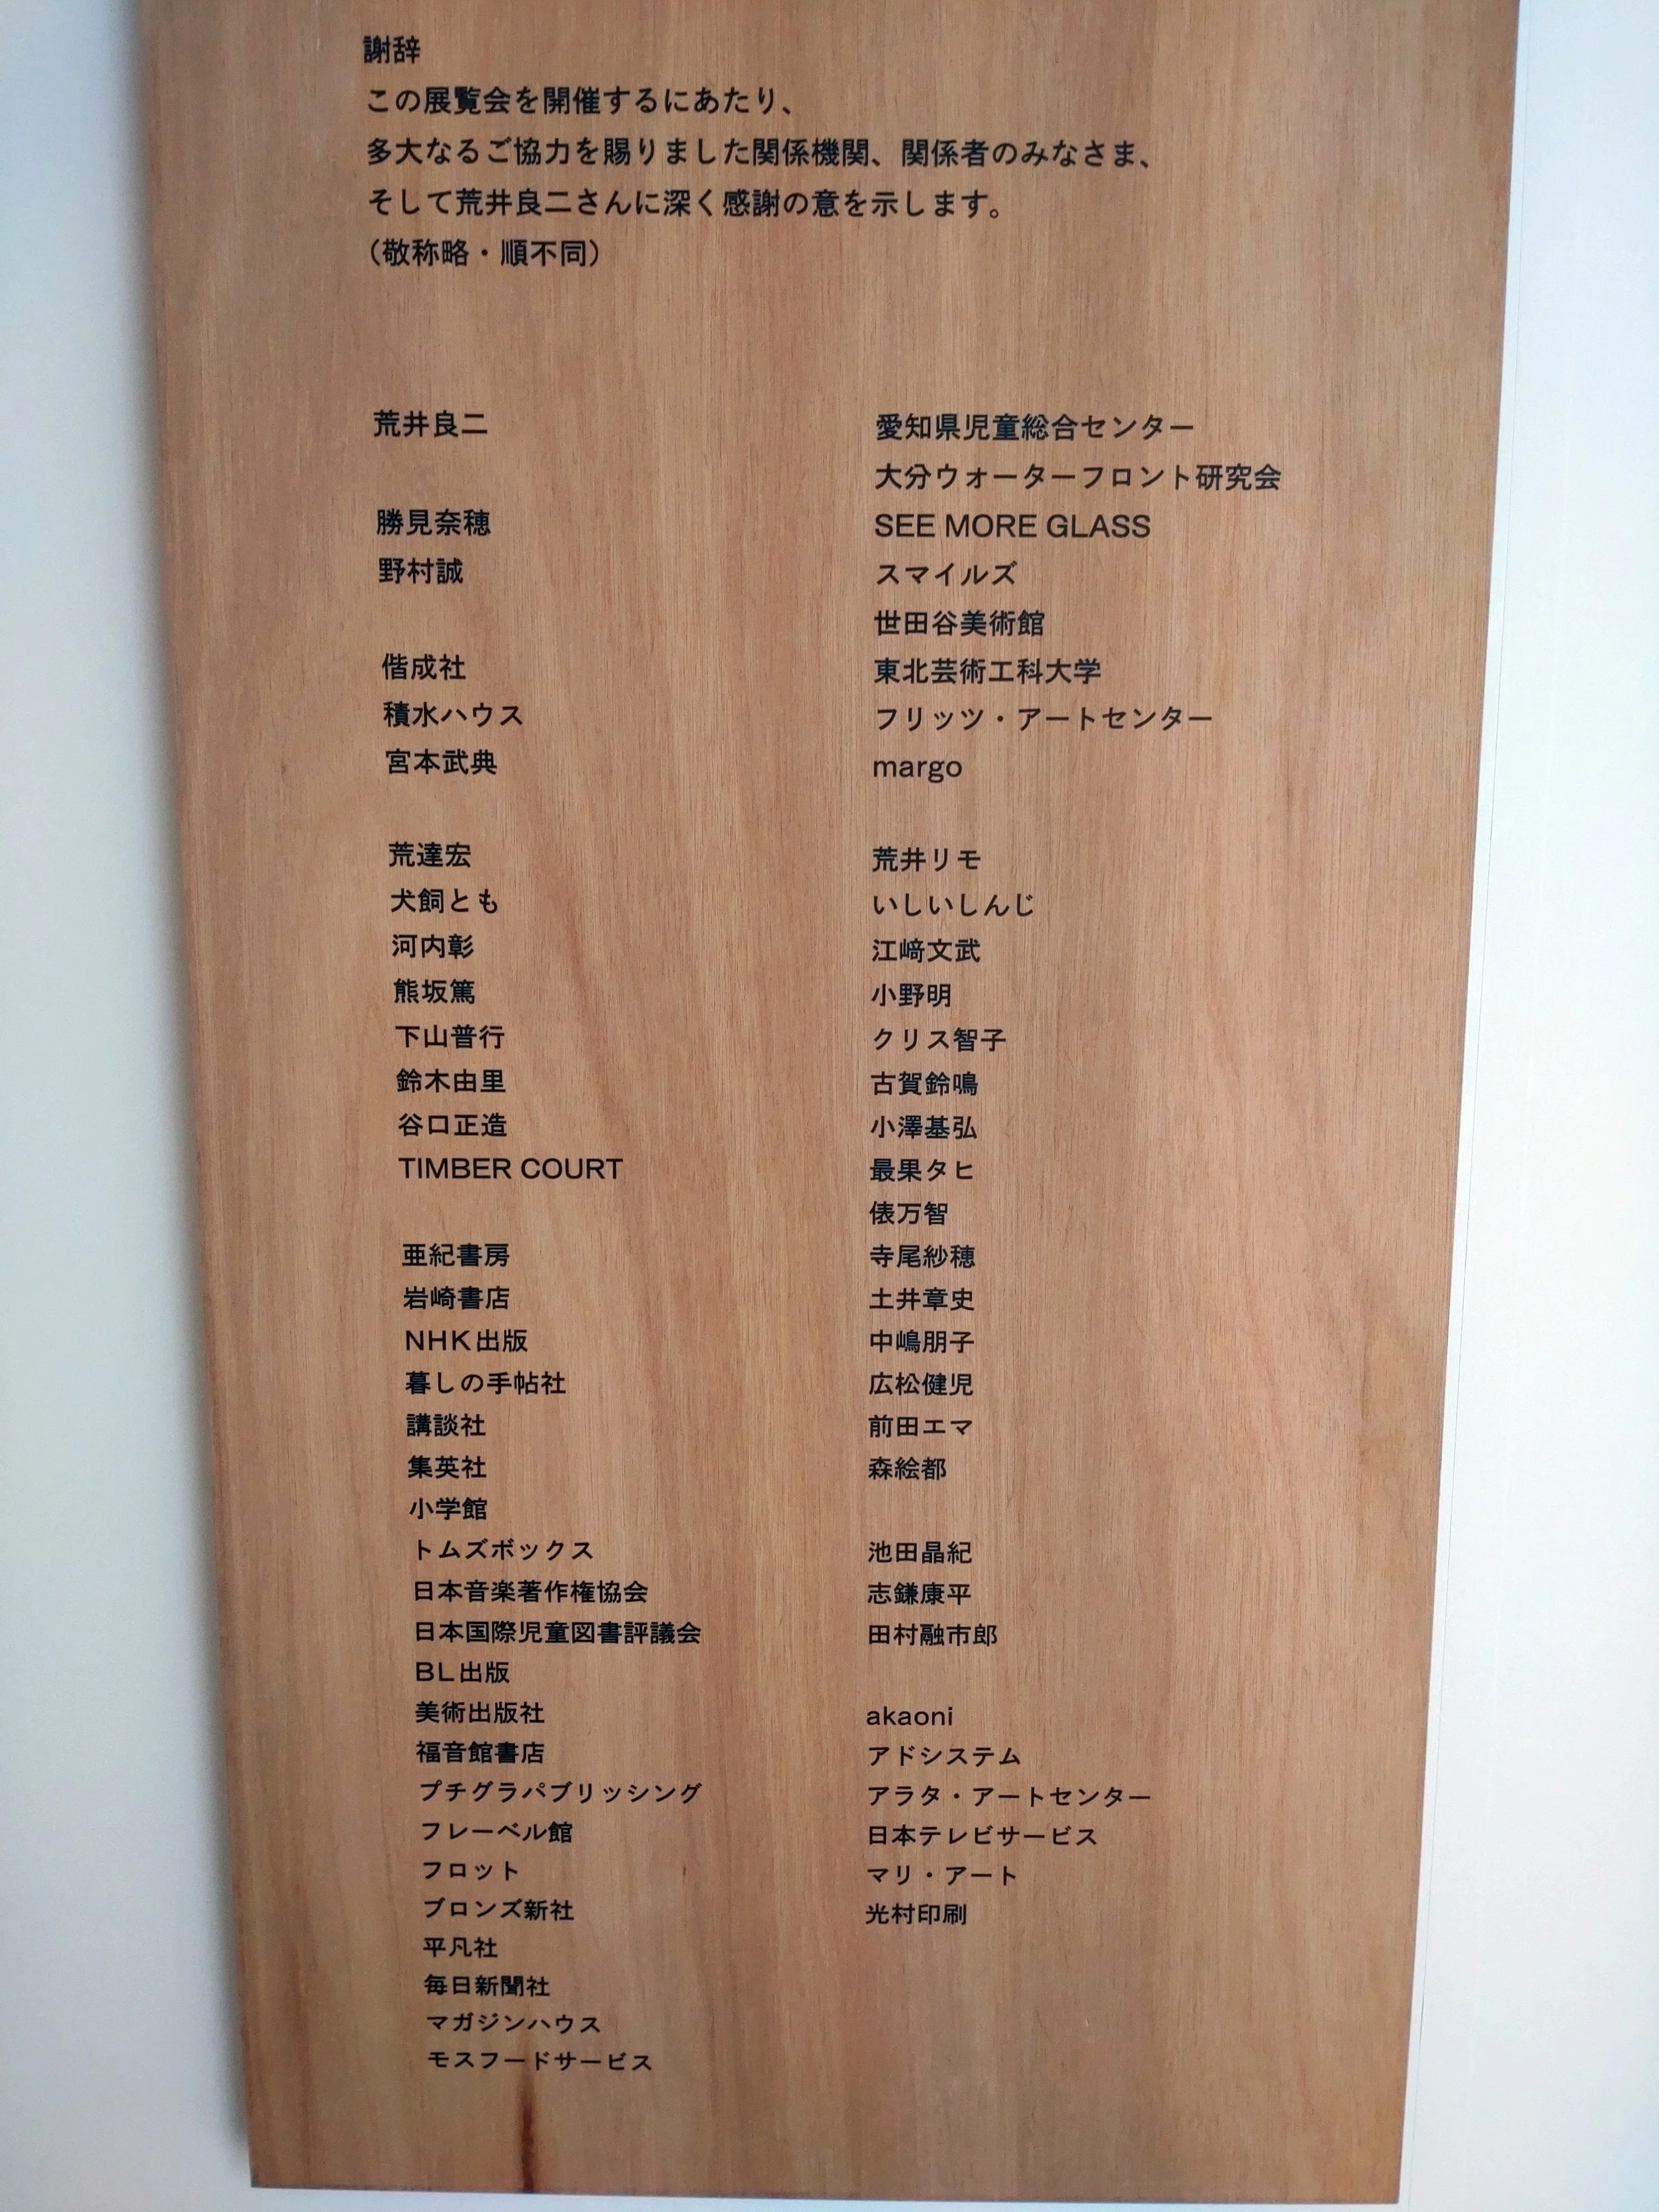 謝辞
この展覧会を開催するにあたり、
多大なるご協力を賜りました関係機関、関係者のみなさま、
そして荒井良二さんに深く感謝の意を示します。
（敬称略・順不同）
荒井良二
勝見奈穂
野村誠
偕成社
積水ハウス
宮本武典
荒達宏
犬飼とも
河内彰
熊坂篤
下山普行
鈴木由里
谷口正造
TIMBER COURT
亜紀書房
岩崎書店
NHK出版
暮しの手帖社
講談社
集英社
小学館
トムズボックス
日本音楽著作権協会
日本国際児童図書評議会
BL出版
美術出版社
福音館書店
プチグラパブリッシング
フレーベル館
フロット
ブロンズ新社
平凡社
毎日新聞社
マガジンハウス
モスフードサービス
愛知県児童総合センター
大分ウォーターフロント研究会
SEE MORE GLASS
スマイルズ
世田谷美術館
東北芸術工科大学
フリッツ・アートセンター
margo
荒井リモ
いしいしんじ
江﨑文武
小野明
クリス智子
古賀鈴鳴
小澤基弘
最果タヒ
俵万智
寺尾紗穂
土井章史
中嶋朋子
広松健児
前田エマ
森絵都
池田晶紀
志鎌康平
田村融市郎
akaoni
アドシステム
アラタ・アートセンター
日本テレビサービス
マリ・アート
光村印刷